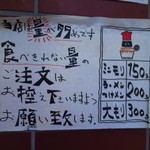 当店量が多めです
食べきれない量の
ご注文は
お極え下さいますよう
お願い致します。
ミニモリ 150g
ラーメン
つけメン 200g
大モリ 300g